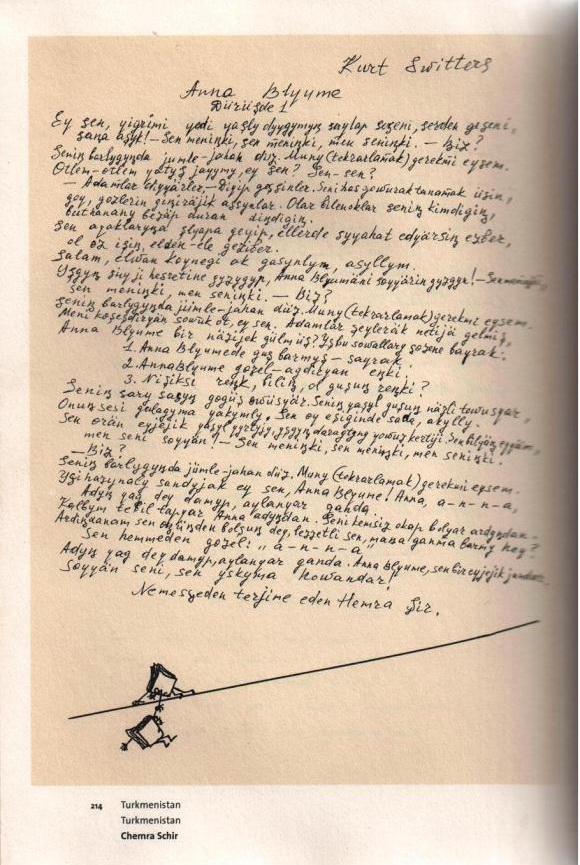 Kurt Switters
Anna Blyume
Dürüşde 1
Ey sen, yigrimi yedi yaşly duygymyň saylap seçeni, serden geçeni,
saňa aşyk! — Sen meniňki, sen meniňki, men seniňki. — Biz?
Seniň barlygyňda jümle-jahan düz. Muny (tekrarlamak) gerekmi eysem.
Otlem-otlem ýatyş jaýymy, eý sen? Sen-sen?
— Adamlar diyyärler, — Diyip geçsinler. Seni has gowurak tanamak üçin,
goy, gözleriň assynlar. Olar bilenoklar seniň kimdigiň,
buthanany bezäp duran diňdigiň.
Sen aýaklaryňa şlyapa geyip, ellerde syyahat edyärsiň ezber,
ol öz işin, elden-ele geziber.
Salam, elwan köynegi ak gasynlym, asyllym.
hesretine gyzygyp, Anna Blyumäni soyyärin gyzgyn! — Sen
sen meniňki, men seniňki. — Biz?
Seniň barlygyňda jümle-jahan düz. Muny (tekrarlamak) gerekmi eysem.
Meni sowuk ot, ey sen. Adamlar şeyleräk netijä gelmiş,
Anna Blyume bir näzijek gülmüş? Işbu sowallary çözene bayrak:
1. Anna Blyumede guş barmyş — sayrak.
2. Anna Blyume gözel — agdykyan eňki.
3. Nişiksi reňk, biliň, ol guşuň reňki?
Seniň sary saçyň gögüş öwüsyär. Seniň yaşyl guşuň näzli
Onuň sesi gulagyma yakymly. Sen öy eşiginde sada, akylly.
Sen örän eyjejik yaşyl daragtyň yowuz kertiji. Sen bilyäň
men seni soyyän! — Sen meniňki, sen meniňki, men seniňki.
— Biz?
Seniň barlygyňda jümle-jahan düz. Muny (tekrarlamak) gerekmi eysem.
hazynaly sandyjak ey sen, Anna Blyume! Anna, a-n-n-a,
Adyň yag dey damyp, aylanyar ganda.
Kalbym tebil tapyar Anna adyňdan. Seni kemsiz okap bolyar ardyňdan.
sen öňüňden bolşuň dey, lezzetli sen, maňa ganma barmy hey?
Sen hemmeden gözel: „a-n-n-a"
Adyň yag dey damyp, aylanyar ganda. Anna Blyume, sen bir eyjejik
Soyyän seni, sen yşkyma howandar!
Nemesçeden terjime eden Hemra Şir.
214 Turkmenistan
Turkmenistan
Chemra Schir